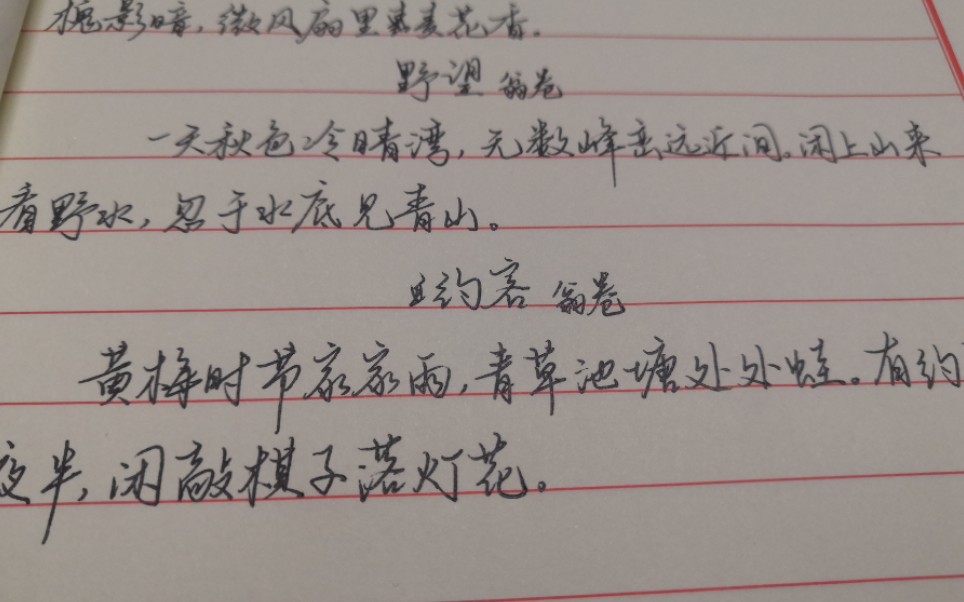 槐影暗，微风扇里麦花香。
野望 翁卷
一天秋色冷晴湾，无数峰峦远近间。闲上山来
看野水，忽于水底见青山。
约客 翁卷
黄梅时节家家雨，青草池塘处处蛙。有约
夜半，闲敲棋子落灯花。